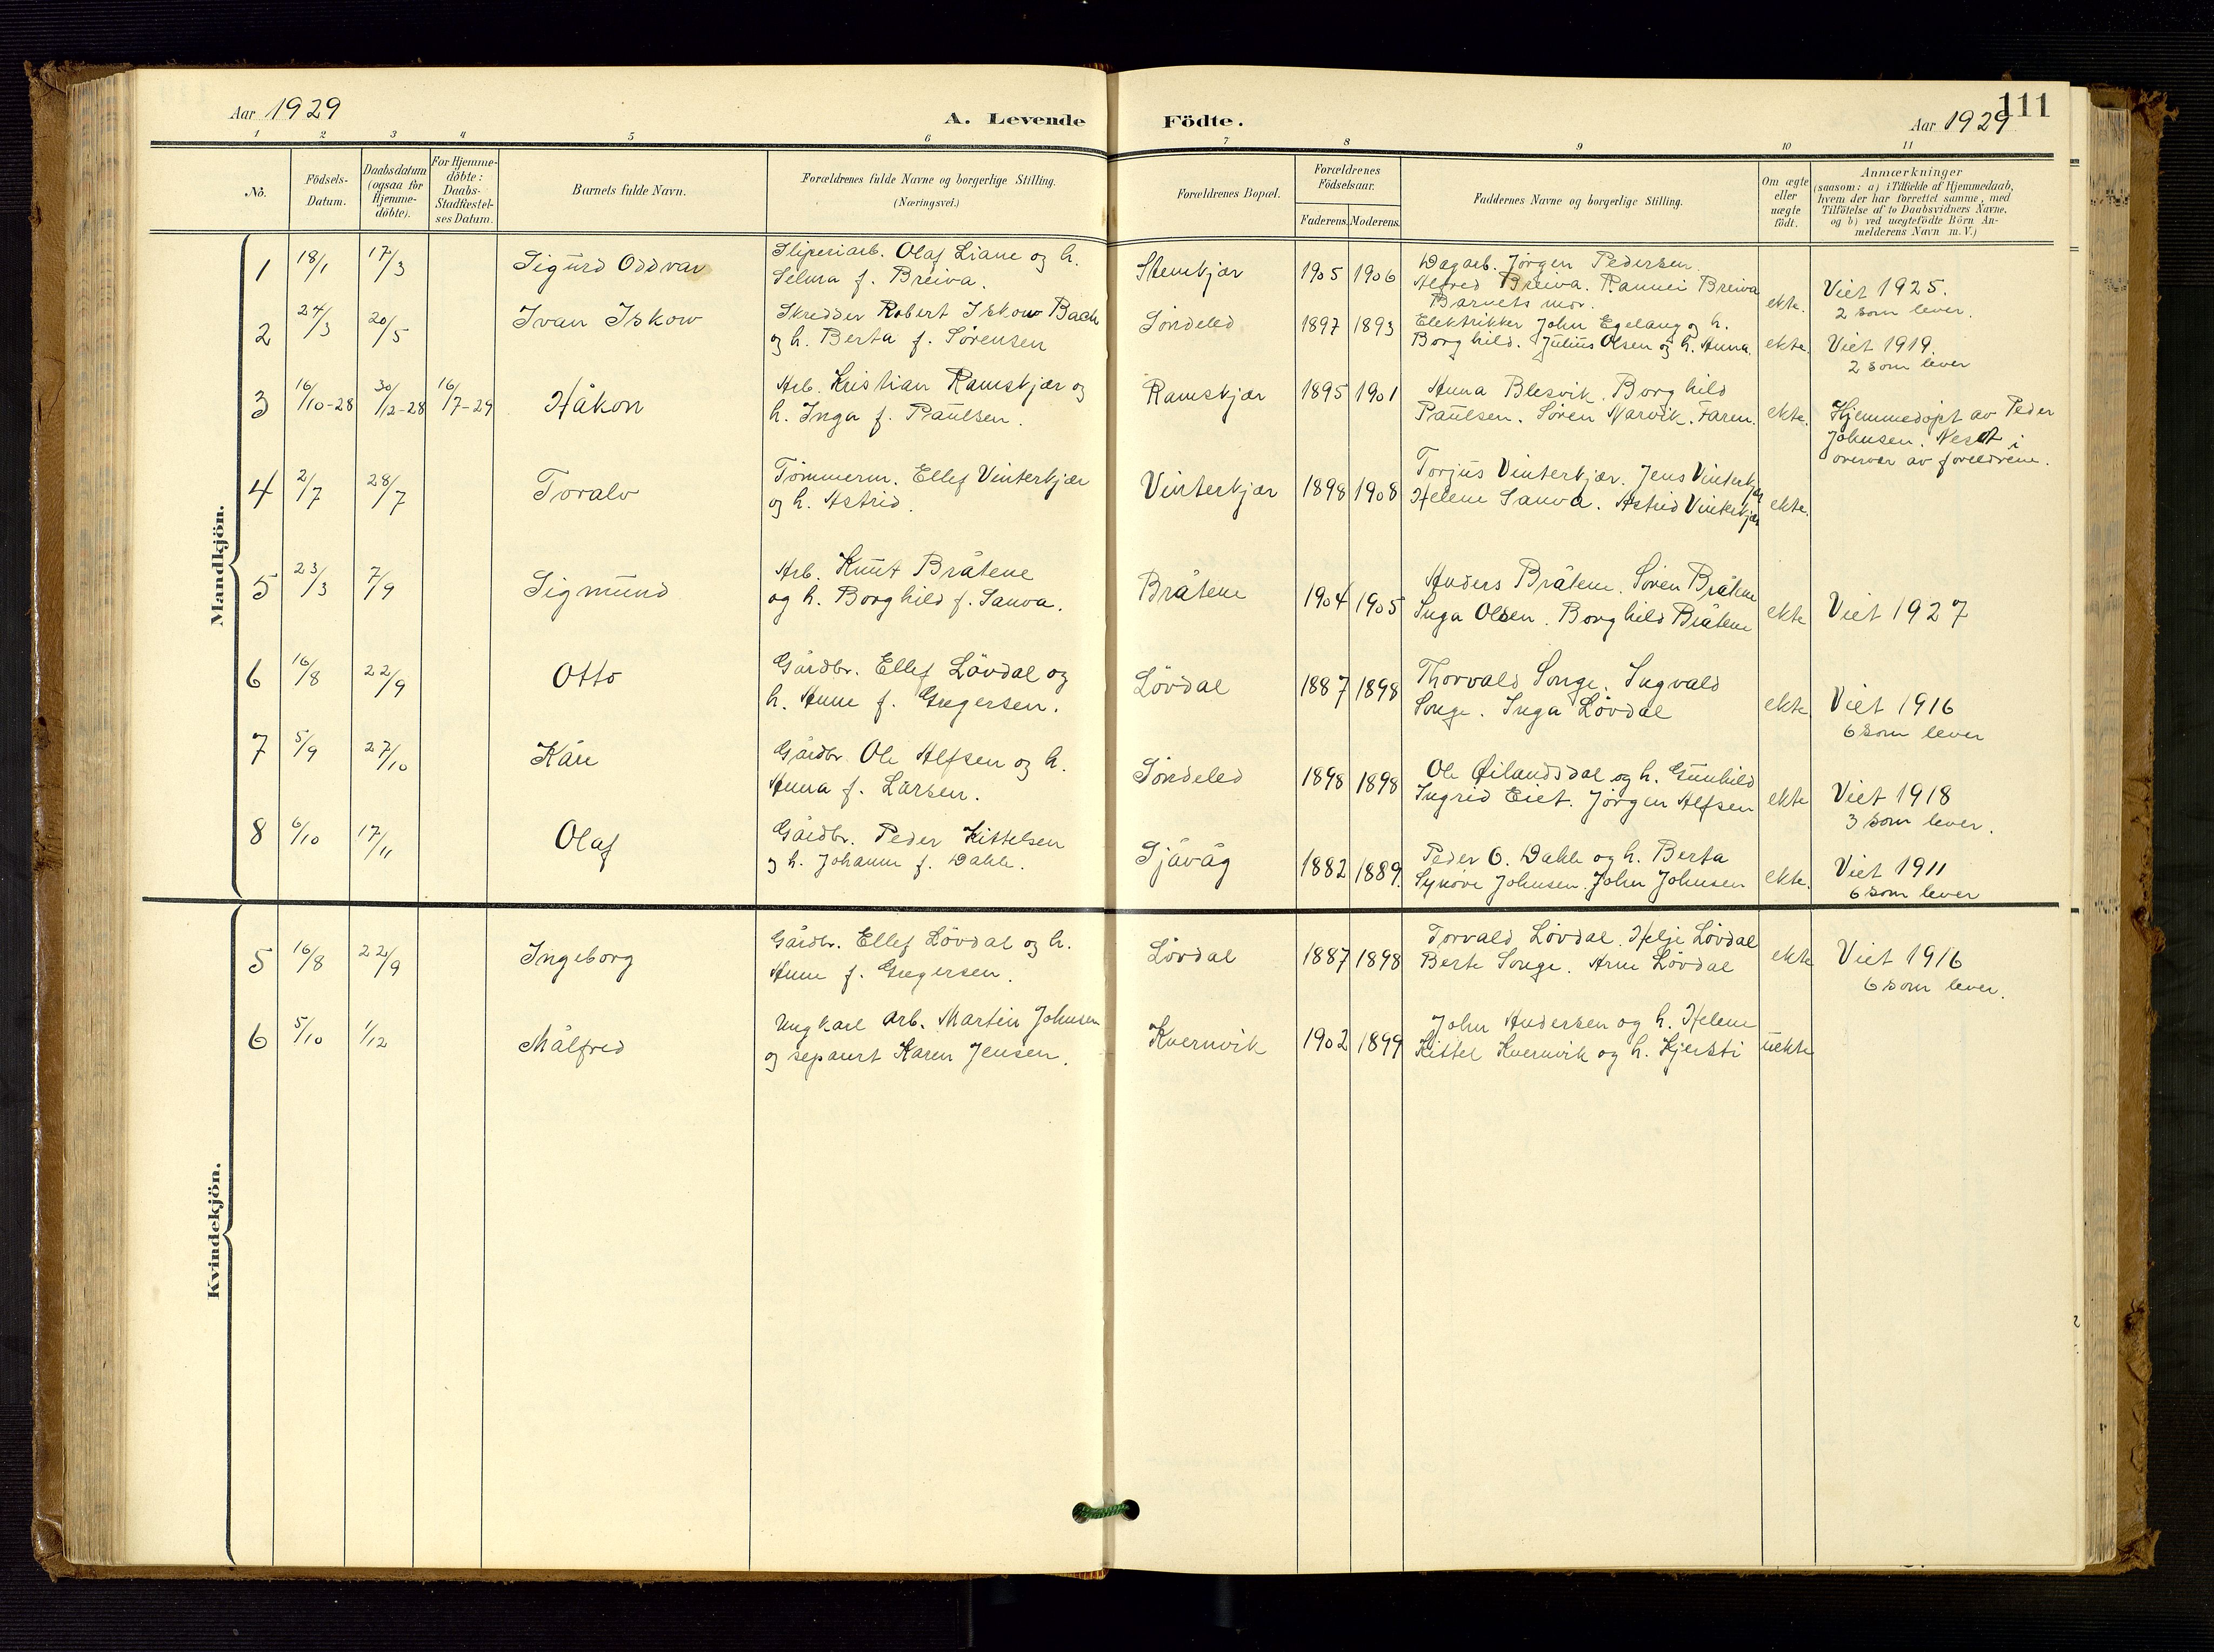 Aar 1929
A. Levende Födte.
111
Aar 1929
1 2 3 4 5 6 7 8 9 10 11
No.
Födsels-
Datum.
Daabsdatum
(ogsaa for
Hjemme-
döbte).
For Hjemme-
döbte:
Daabs-
Stadfæstel-
ses Datum.
Barnets fulde Navn.
Forældrenes fulde Navne og borgerlige Stilling.
(Næringsvei.)
Forældrenes Bopæl.
Forældrenes
Födselsaar.
Faderens. Moderens.
Faddernes Navne og borgerlige Stilling.
Om ægte
eller
uægte
födt.
Anmærkninger
(saasom: a) i Tilfælde af Hjemmedaab,
hvem der har forrettet samme, med
Tilföielse af to Daabsvidners Navne,
og b) ved uægtefödte Börn An-
melderens Navn m. V.)
Mandkjön.
1 18/1 17/3 Sigurd Oddvar
Sliperiarb. Olaf Liane og h.
Selma f. Breiva.
Stemkjær 1905 1906
Dagarb. Jörgen Pedersen.
Alfred Breiva. Rannei Breiva
Barnets mor.
ekte.
Viet 1925.
2 som lever.
2 24/3 20/5 Ivan Iskow
Skredder Robert Iskow Bach
og h. Berta f. Sörensen
Söndeled 1897 1893
Elektrikker John Egelang og h.
Borghild. Julius Olsen og h. Anna.
ekte.
Viet 1919.
2 som lever
3 16/10-28 30/12-28 16/7-29 Håkon
Arb. Kristian Ramskjær og
h. Inga f. Paulsen.
Ramskjær 1895 1901
Anna Blesvik. Borghild
Paulsen. Sören Narvik. Faren.
ekte.
Hjemmedöpt av Peder
Johnsen. Nes i
overvær av foreldrene.
4 2/7 28/7 Toralv
Tömmerm. Ellef Vinterkjær
og h. Astrid.
Vinterkjær 1898 1908
Torjus Vinterkjær. Jens Vinterkjær
Helene Sanva. Astrid Vinterkjær
ekte.
5 23/3 7/9 Sigmund
Arb. Knut Bråtene
og h. Borghild f. Sanva.
Bråtene 1904 1905
Anders Bråtene. Sören Bråtene
Inga Olsen. Borghild Bråtene
ekte
Viet 1927
6 16/8 22/9 Otto
Gårdbr. Ellef Lövdal og
h. Anne f. Gregersen.
Lövdal 1887 1898
Thorvald Songe. Ingvald
Songe. Inga Lövdal
ekte
Viet 1916
6 som lever
7 5/9 27/10 Kåre
Gårdbr. Ole Alfsen og h.
Anna f. Larsen.
Söndeled 1898 1898
Ole Öilandsdal og h. Gunhild
Ingrid Eiet. Jörgen Alfsen
ekte
Viet 1918
3 som lever.
8 6/10 17/11 Olaf
Gårdbr. Peder Kittelsen
og h. Johanne f. Dahle.
Sjåvåg 1882 1889.
Peder O. Dahle og h. Berta
Synöve Johnsen. John Johnsen
ekte.
Viet 1911
6 som lever
Kvindekjön.
5 16/8 22/9 Ingeborg
Gårdbr. Ellef Lövdal og h.
Anne f. Gregersen.
Lövdal 1887 1898
Torvald Lövdal. Helje Lövdal
Berte Songe. Arne Lövdal
ekte
Viet 1916
6 som lever.
6 5/10 1/12 Målfred
Ungkarl Arb. Martin Johnsen
og separert Karen Jensen.
Kvernvik 1902 1899
John Andersen og h. Helene
Kittel Kvernvik og h. Kjersti
uekte